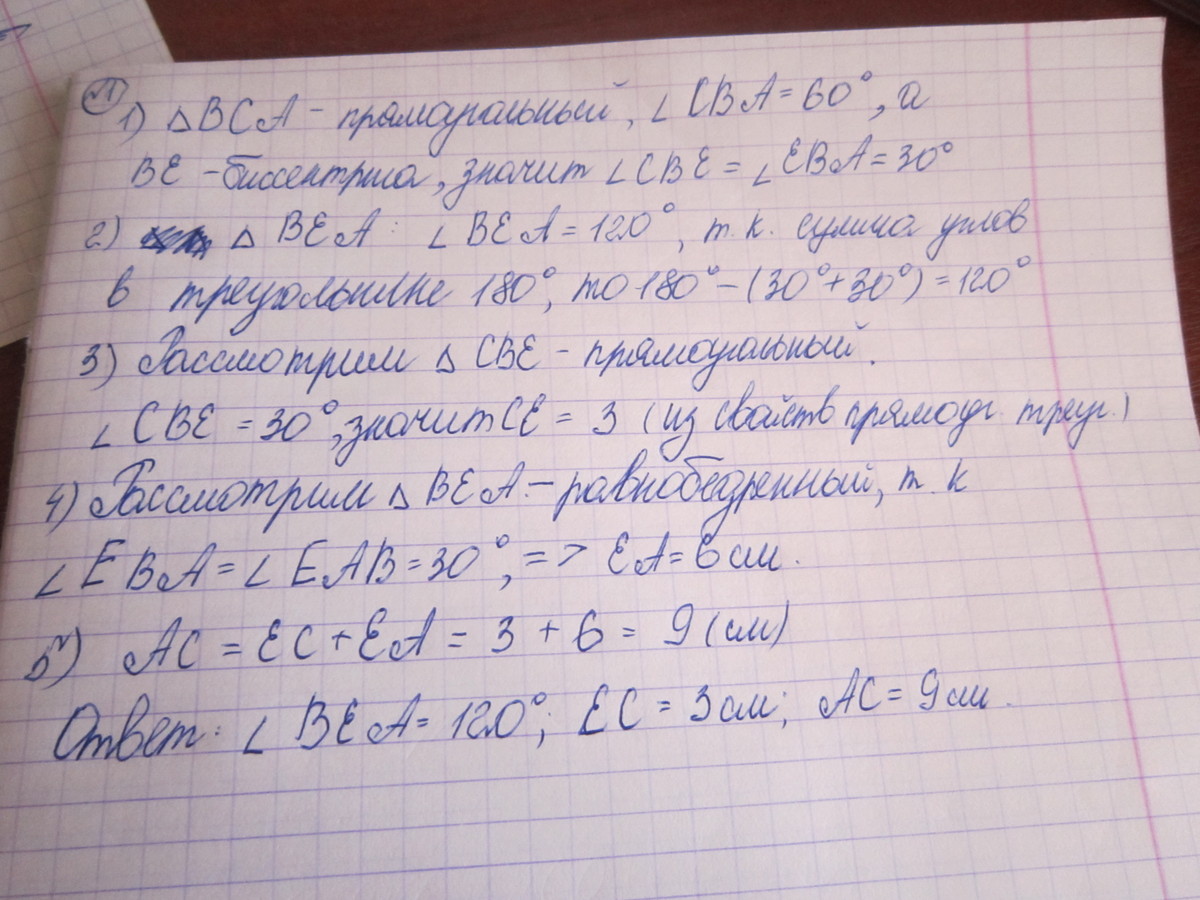 √1
1) △ BCA - прямоугальный, ∠ CBA = 60°, а
BE - биссектриса, значит ∠ CBE = ∠ EBA = 30°
2) △ BEA: ∠ BEA = 120°, т.к. сумма углов
в треугольнике 180°, то 180° - (30° + 30°) = 120°
3) Рассмотрим △ CBE - прямоугальный.
∠ CBE = 30°, значит CE = 3 (из свойств прямоуг. треуг.)
4) Рассмотрим △ BEA. - равнобедренный, т.к
∠ EBA = ∠ EAB = 30°, => EA = 6 см.
5) AC = EC + EA = 3 + 6 = 9 (см)
Ответ: ∠ BEA = 120°; EC = 3 см; AC = 9 см.